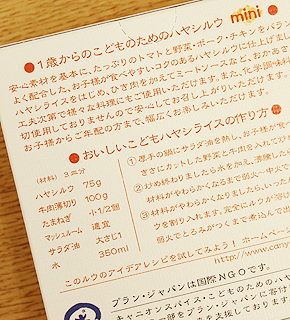 mini
●1歳からのこどものためのハヤシルウ
安心素材を基本に、たっぷりのトマトと野菜・ポーク・チキンをバラン
よく配合した、お子様が食べやすいコクのあるハヤシルウに仕上げまし
ハヤシライスをはじめ、ひき肉を加えてミートソースなど、おかあさ
工夫次第で様々な料理にもご使用いただけます。また、化学調味
切使用しておりませんので安心してお召し上がりいただけます。
お子様からご年配の方まで、幅広くお楽しみいただけます。
●おいしいこどもハヤシライスの作り方●
(材料) 3皿分
ハヤシルウ 75g
牛肉薄切り 100g
たまねぎ 小1/2個
マッシュルーム 適宜
サラダ油 大さじ1
水 350ml
①厚手の鍋にサラダ油を熱し、お子様が食
さにカットした野菜と牛肉を入れて炒め
②炒め終わりましたら水を加え、沸騰した
材料がやわらかくなるまで弱火~中火で
③材料がやわらかくなりましたら、いった
ウを割り入れます。完全にルウが溶け
弱火でとろみがつくまで煮込んで出
このルウのアイデアレシピを試してみよう! ホームページ
http://www.cany
プラン・ジャパンは国際NGOです。
キャニオンスパイス・こどものためのハヤ
一部をプラン・ジャパンに寄付
を支援しております